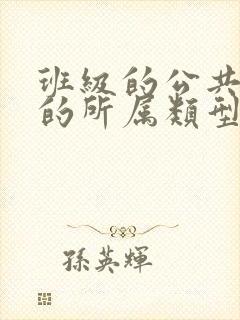 班級的公共
的所属類型
孫英輝